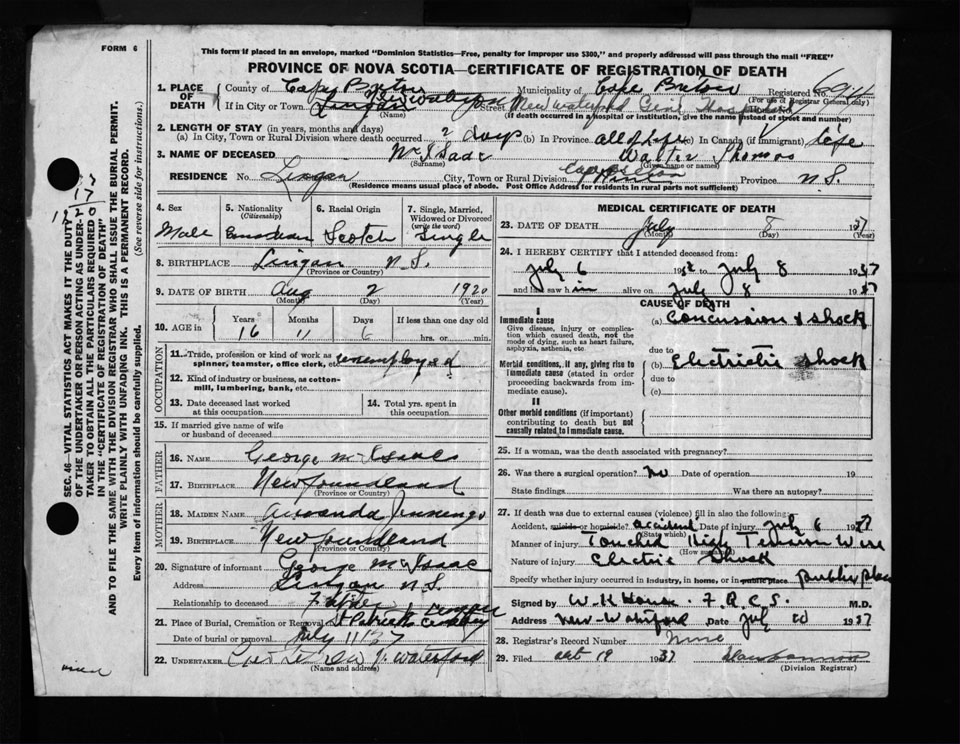 FORM 6
This form if placed in an envelope, marked "Dominion Statistics—Free, penalty for improper use $300," and properly addressed will pass through the mail "FREE"
PROVINCE OF NOVA SCOTIA—CERTIFICATE OF REGISTRATION OF DEATH
1. PLACE OF DEATH County of Cape Breton Municipality of Cape Breton Registered No.
(For use of Registrar General only)
If in City or Town Lingan Street New Waterford Genl Hospital
(Name) (If death occurred in a hospital or institution, give its name instead of street and number)
2. LENGTH OF STAY (in years, months and days)
(a) In City, Town or Rural Division where death occurred 2 days (b) In Province all of life (c) In Canada (if immigrant) life
3. NAME OF DECEASED McIsaac Walter Thomas
(Surname) (Given name or names)
RESIDENCE No. Lingan City, Town or Rural Division Province N.S.
(Residence means usual place of abode. Post Office Address for residents in rural parts not sufficient)
4. Sex Male
5. Nationality (Citizenship) Canadian
6. Racial Origin Scotch
7. Single, Married, Widowed or Divorced (write the word) Single
8. BIRTHPLACE Lingan N.S.
(Province or Country)
9. DATE OF BIRTH Aug 2 1920
(Month) (Day) (Year)
10. AGE in Years Months Days If less than one day old
16 11 6 hrs. or min.
OCCUPATION
11. Trade, profession or kind of work as spinner, teamster, office clerk, etc. unemployed
12. Kind of industry or business, as cotton-mill, lumbering, bank, etc.
13. Date deceased last worked at this occupation
14. Total yrs. spent in this occupation
15. If married give name of wife or husband of deceased
FATHER
16. NAME George McIsaac
17. BIRTHPLACE Newfoundland
(Province or Country)
MOTHER
18. MAIDEN NAME Amanda Jennings
19. BIRTHPLACE Newfoundland
(Province or Country)
20. Signature of informant George McIsaac
Address Lingan N.S.
Relationship to deceased Father
21. Place of Burial, Cremation or Removal St Patricks Cemetery Lingan
Date of burial or removal July 11/37
22. UNDERTAKER N. Waterford
(Name and address)
MEDICAL CERTIFICATE OF DEATH
23. DATE OF DEATH July 8 1937
(Month) (Day) (Year)
24. I HEREBY CERTIFY that I attended deceased from:
July 6 19 to July 8 1937
and last saw him alive on July 8 1937
CAUSE OF DEATH
I
Immediate cause
Give disease, injury or complication which caused death, not the mode of dying, such as heart failure, asphyxia, asthenia, etc.
(a) Concussion & shock
due to
Morbid conditions, if any, giving rise to immediate cause (stated in order proceeding backwards from immediate cause).
(b) Electric shock
due to
(c)
II
Other morbid conditions (if important) contributing to death but not causally related to immediate cause.
25. If a woman, was the death associated with pregnancy?
26. Was there a surgical operation? No Date of operation 19
State findings Was there an autopsy?
27. If death was due to external causes (violence) fill in also the following:
Accident, suicide or homicide? accident Date of injury July 6 1937
(State which)
Manner of injury Touched High Tension Wire
(How sustained)
Nature of injury Electric Shock
Specify whether injury occurred in industry, in home, or in public place public place
Signed by F.R.C.S. M.D.
Address New Waterford Date July 1937
28. Registrar's Record Number
29. Filed Oct 19 1937
(Division Registrar)
SEC. 46—VITAL STATISTICS ACT MAKES IT THE DUTY OF THE UNDERTAKER OR PERSON ACTING AS UNDERTAKER TO OBTAIN ALL THE PARTICULARS REQUIRED IN THE "CERTIFICATE OF REGISTRATION OF DEATH" AND TO FILE THE SAME WITH THE DIVISION REGISTRAR WHO SHALL ISSUE THE BURIAL PERMIT.
WRITE PLAINLY WITH UNFADING INK. THIS IS A PERMANENT RECORD.
Every item of information should be carefully supplied. (See reverse side for instructions.)